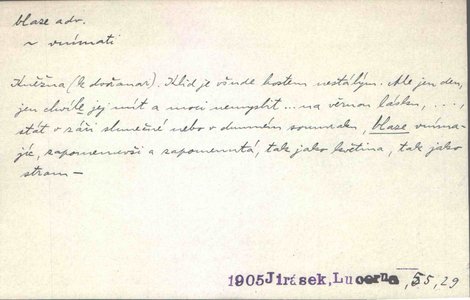 blaze adv.
~ vnímati
Kněžna (k dvořanar). Klid je všude hostem nestálým. Ale jen den,
jen chvíle jej mít a moci nemyslit... na věrnou lásku, ...,
stát v záři slunečné nebo v dumném soumraku, blaze vníma-
jíc, zapomenuvši a zapomenutá, tak jako květina, tak jako
strom –
1905 Jirásek, Lucerna, 55, 29